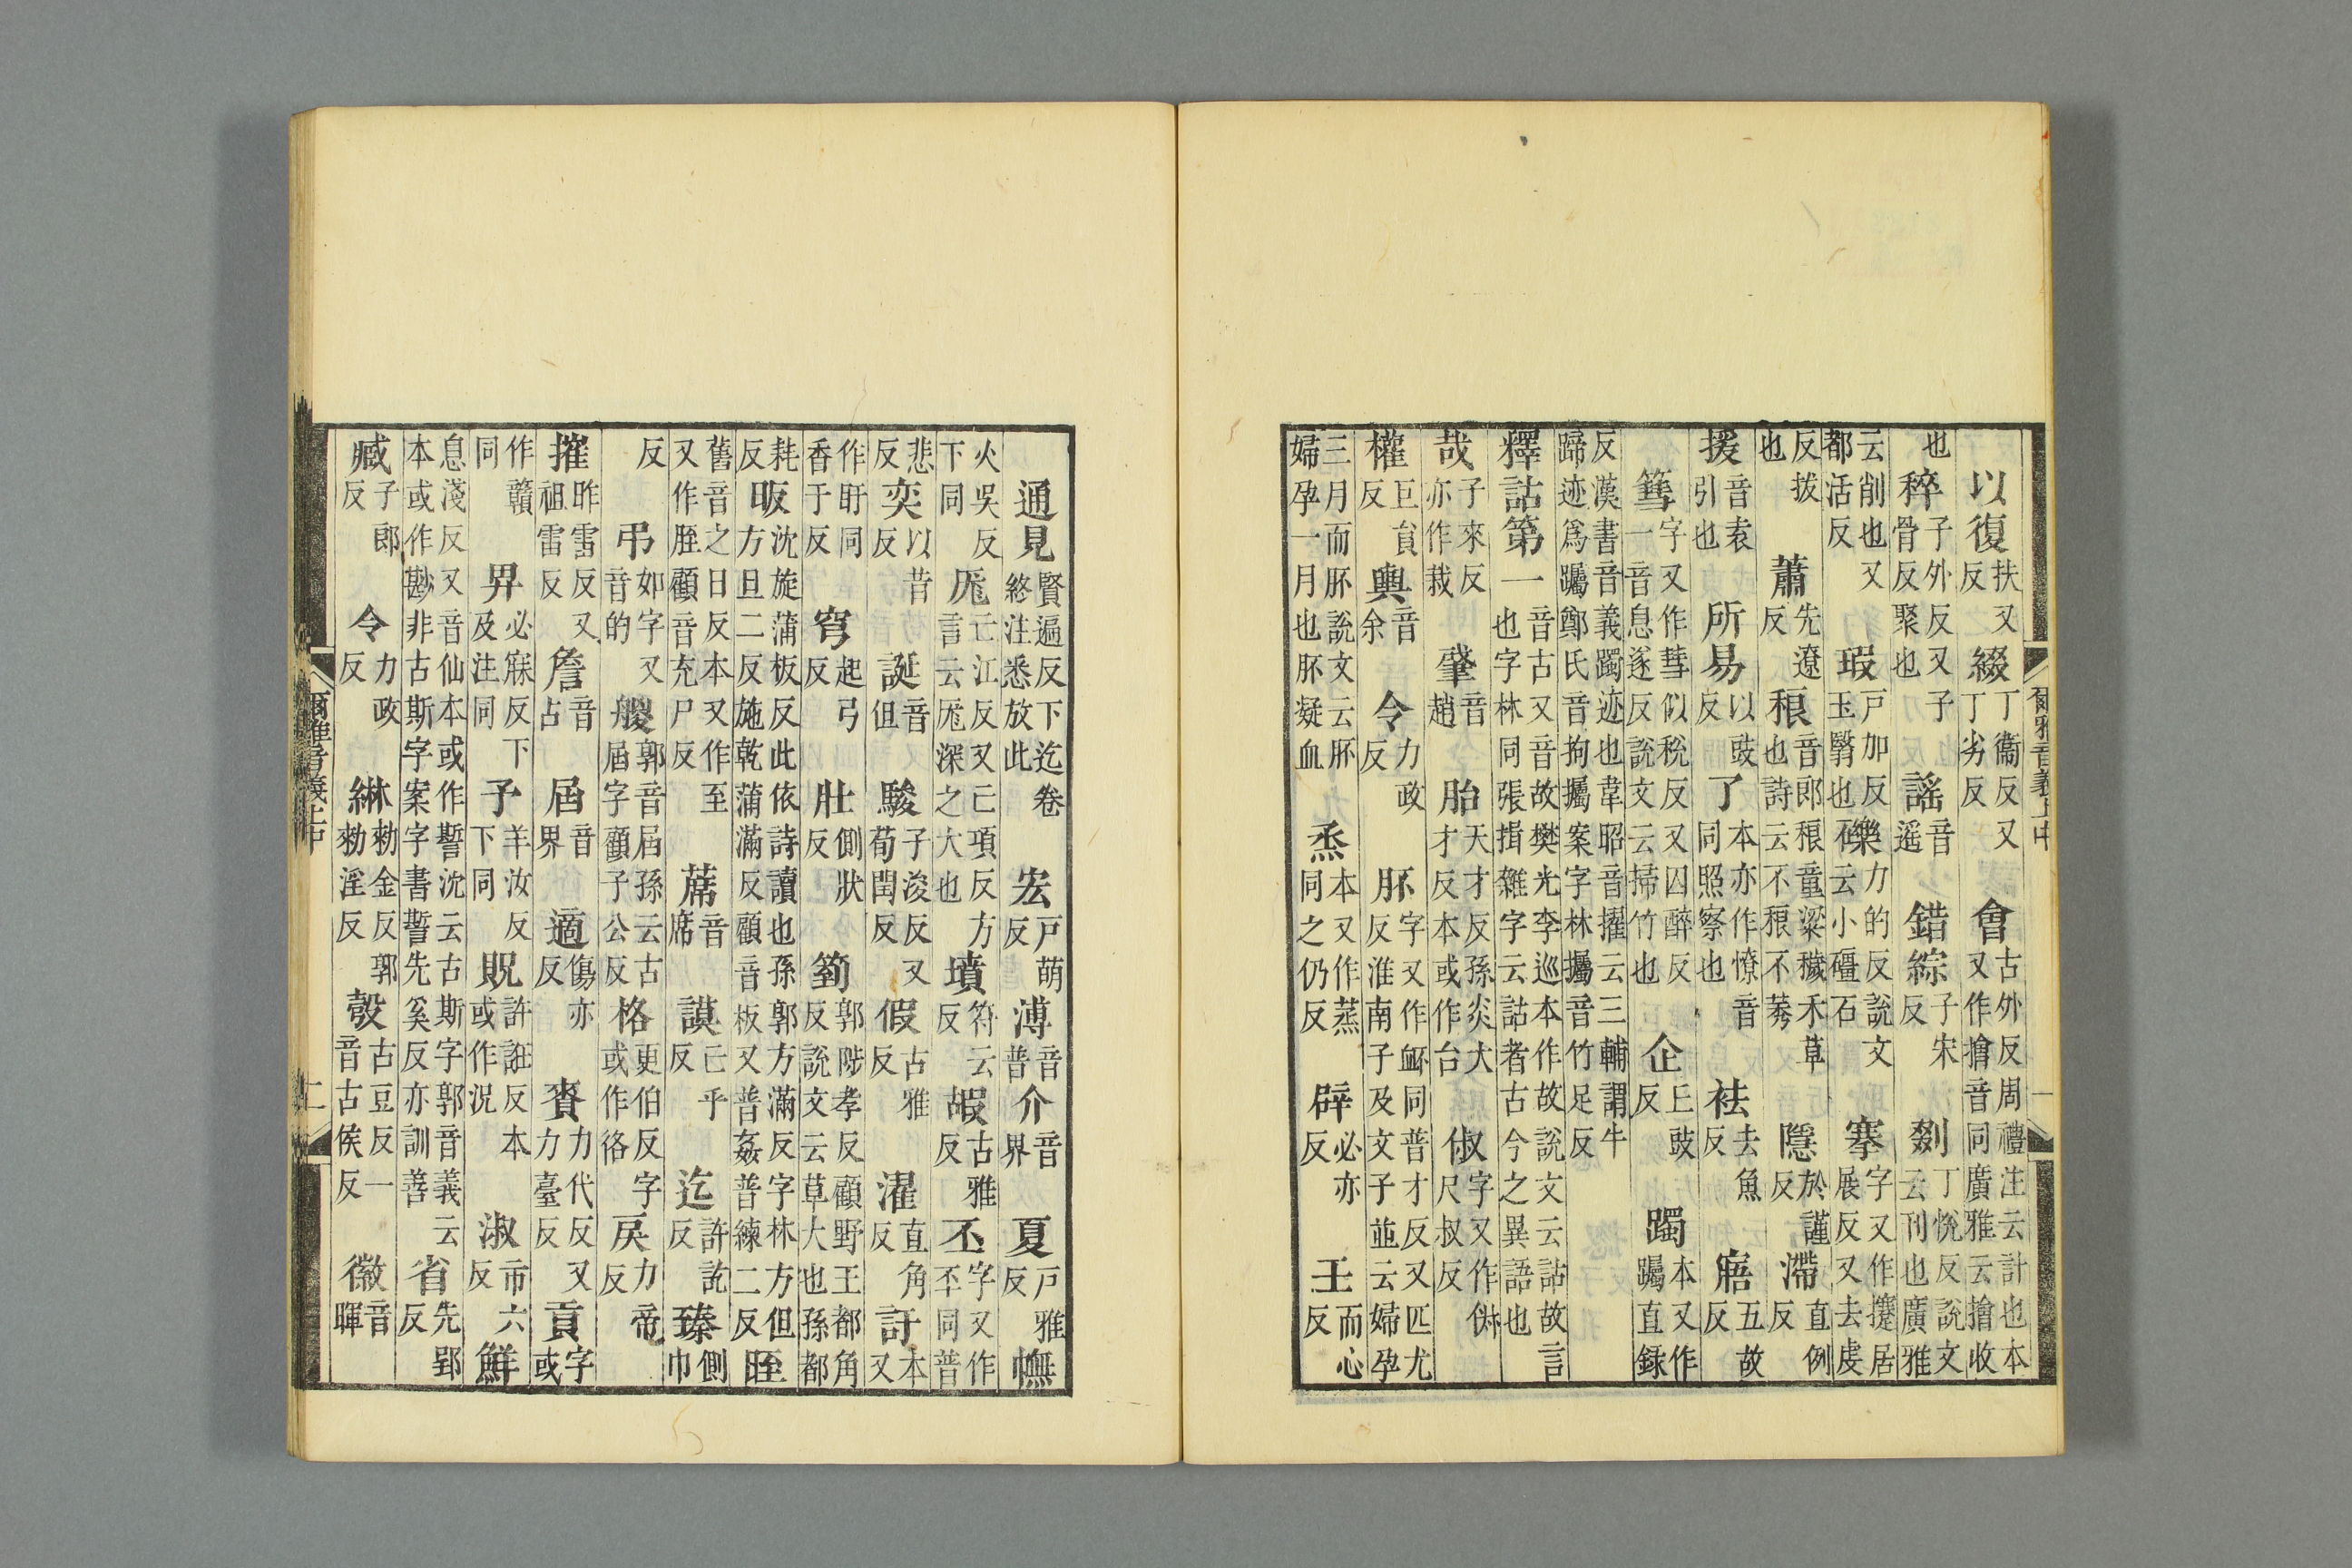 爾雅音義上中
一
以復扶又反綴丁衞反又丁劣反會古外反周禮注云計也本又作音同廣雅云收
也稡子外反又子骨反聚也謠音遥錯綜子宋反剟丁悅反說文云刊也廣雅
云削也又都活反瑕戸加反玉翳也礫力的反說文云小礓石搴字又作攓居展反又去虔
反拔也蕭先遼反稂音郎稂童粱穢禾草也詩云不稂不莠隱於謹反滯直例反
援音袁引也所易以豉反了本亦作憭音同照察也袪去魚反寤五故反
篲字又作彗似稅反又囚醉反一音息遂反說文云掃竹也企丘豉反躅本又作躅直録
反漢書音義躅迹也韋昭音擢云三輔謂牛蹄迹爲躅鄭氏音拘攦案字林躅音竹足反
釋詁第一音古又音故樊光李巡本作故說文云詁故言也字林同張揖雜字云詁者古今之異語也
哉子來反亦作裁肇音趙胎天才反孫炎大才反本或作台俶字又作尺叔反
權巨貟反輿音余令力政反胚字又作衃同普才反又匹尤反淮南子及文子並云婦孕
三月而胚說文云胚婦孕一月也胚凝血烝本又作蒸同之仍反辟必亦反壬而心反
通見賢遍反下迄卷終注悉放此宏戸萌反溥音普介音界夏戸雅反幠
火吳反下同厖亡江反又亡項反方言云厖深之大也墳符云反嘏古雅反丕字又作㔻同普
悲反奕以昔反誕音但駿子浚反又荀閏反假古雅反濯直角反訏本又
作盱同香于反穹起弓反壯側狀反箌郭陟孝反顧野王都角反說文云草大也孫都
耗反昄沈旋蒲板反此依詩讀也孫郭方滿反字林方但反方旦二反施乾蒲滿反顧音板又普姦普練二反晊
舊音之日反本又作至又作胵顧音充尸反蓆音席謨亡乎反迄許訖反臻側巾
反弔如字又音的艐郭音屆孫云古屆字顧子公反格更伯反字或作佫戾力帝反
摧昨雷反又祖雷反詹音占屆音界適傷亦反賚力代反又力臺反貢字或
作贛同畀必寐反下及注同予羊汝反下同貺許誑反本或作況淑市六反鮮
息淺反又音仙本或作誓沈云古斯字郭音義云本或作尠非古斯字案字書誓先奚反亦訓善省先郢反
臧子郎反令力政反綝勑金反郭勑淫反㲄古豆反一音古侯反徽音暉
爾雅音義上中
二